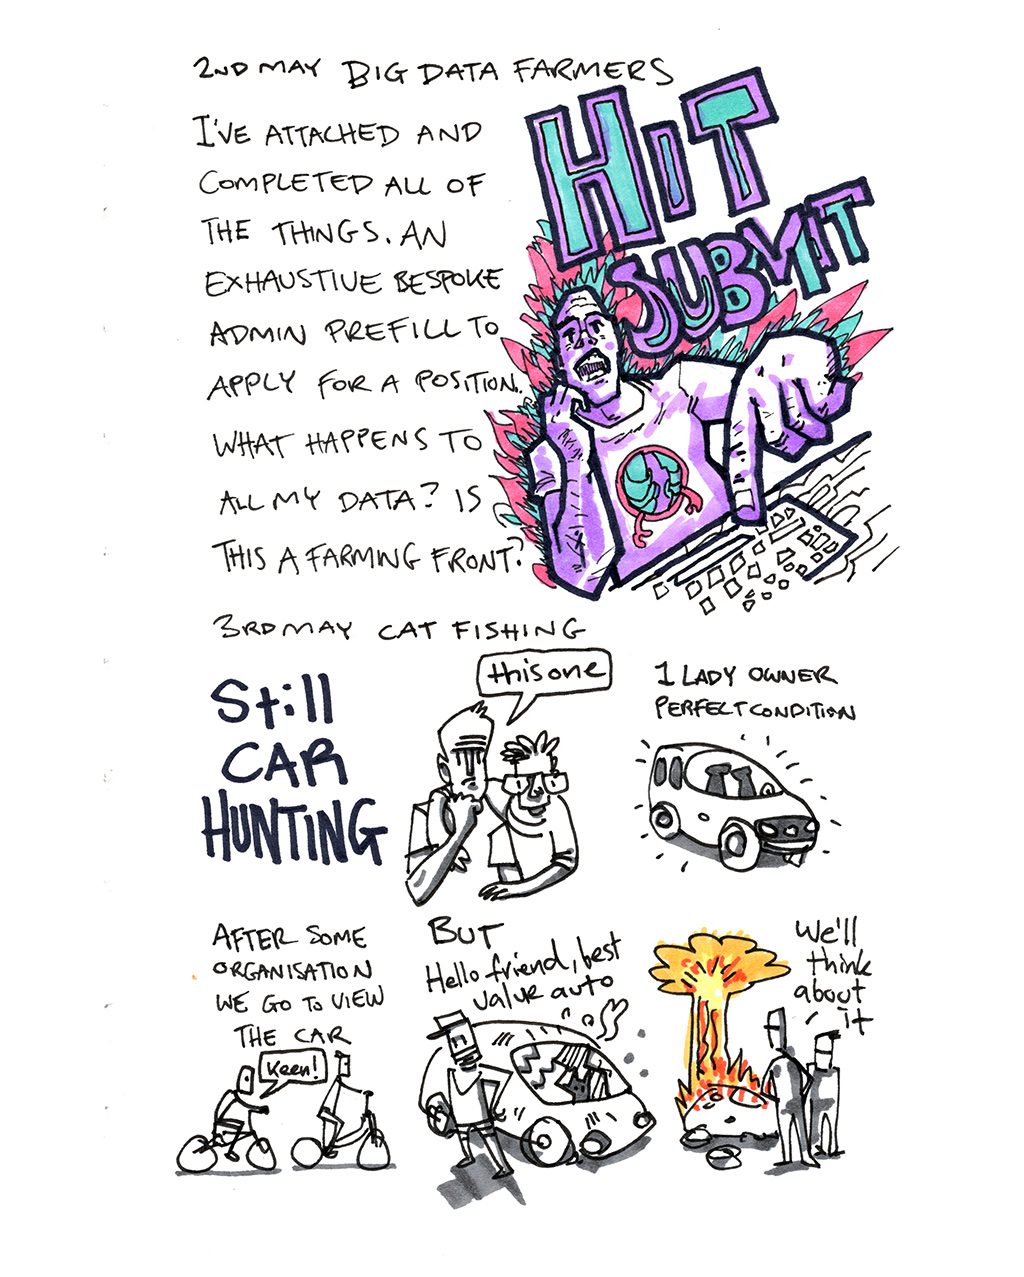 2ND MAY BIG DATA FARMERS
I'VE ATTACHED AND
COMPLETED ALL OF
THE THINGS. AN
EXHAUSTIVE BESPOKE
ADMIN PREFILL TO
APPLY FOR A POSITION.
WHAT HAPPENS TO
ALL MY DATA? IS
THIS A FARMING FRONT?
HIT
SUBMIT
3RD MAY CAT FISHING
Still
CAR
HUNTING
this one
1 LADY OWNER
PERFECT CONDITION
AFTER SOME
ORGANISATION
WE GO TO VIEW
THE CAR
Keen!
BUT
Hello friend, best
value auto
We'll
think
about
it